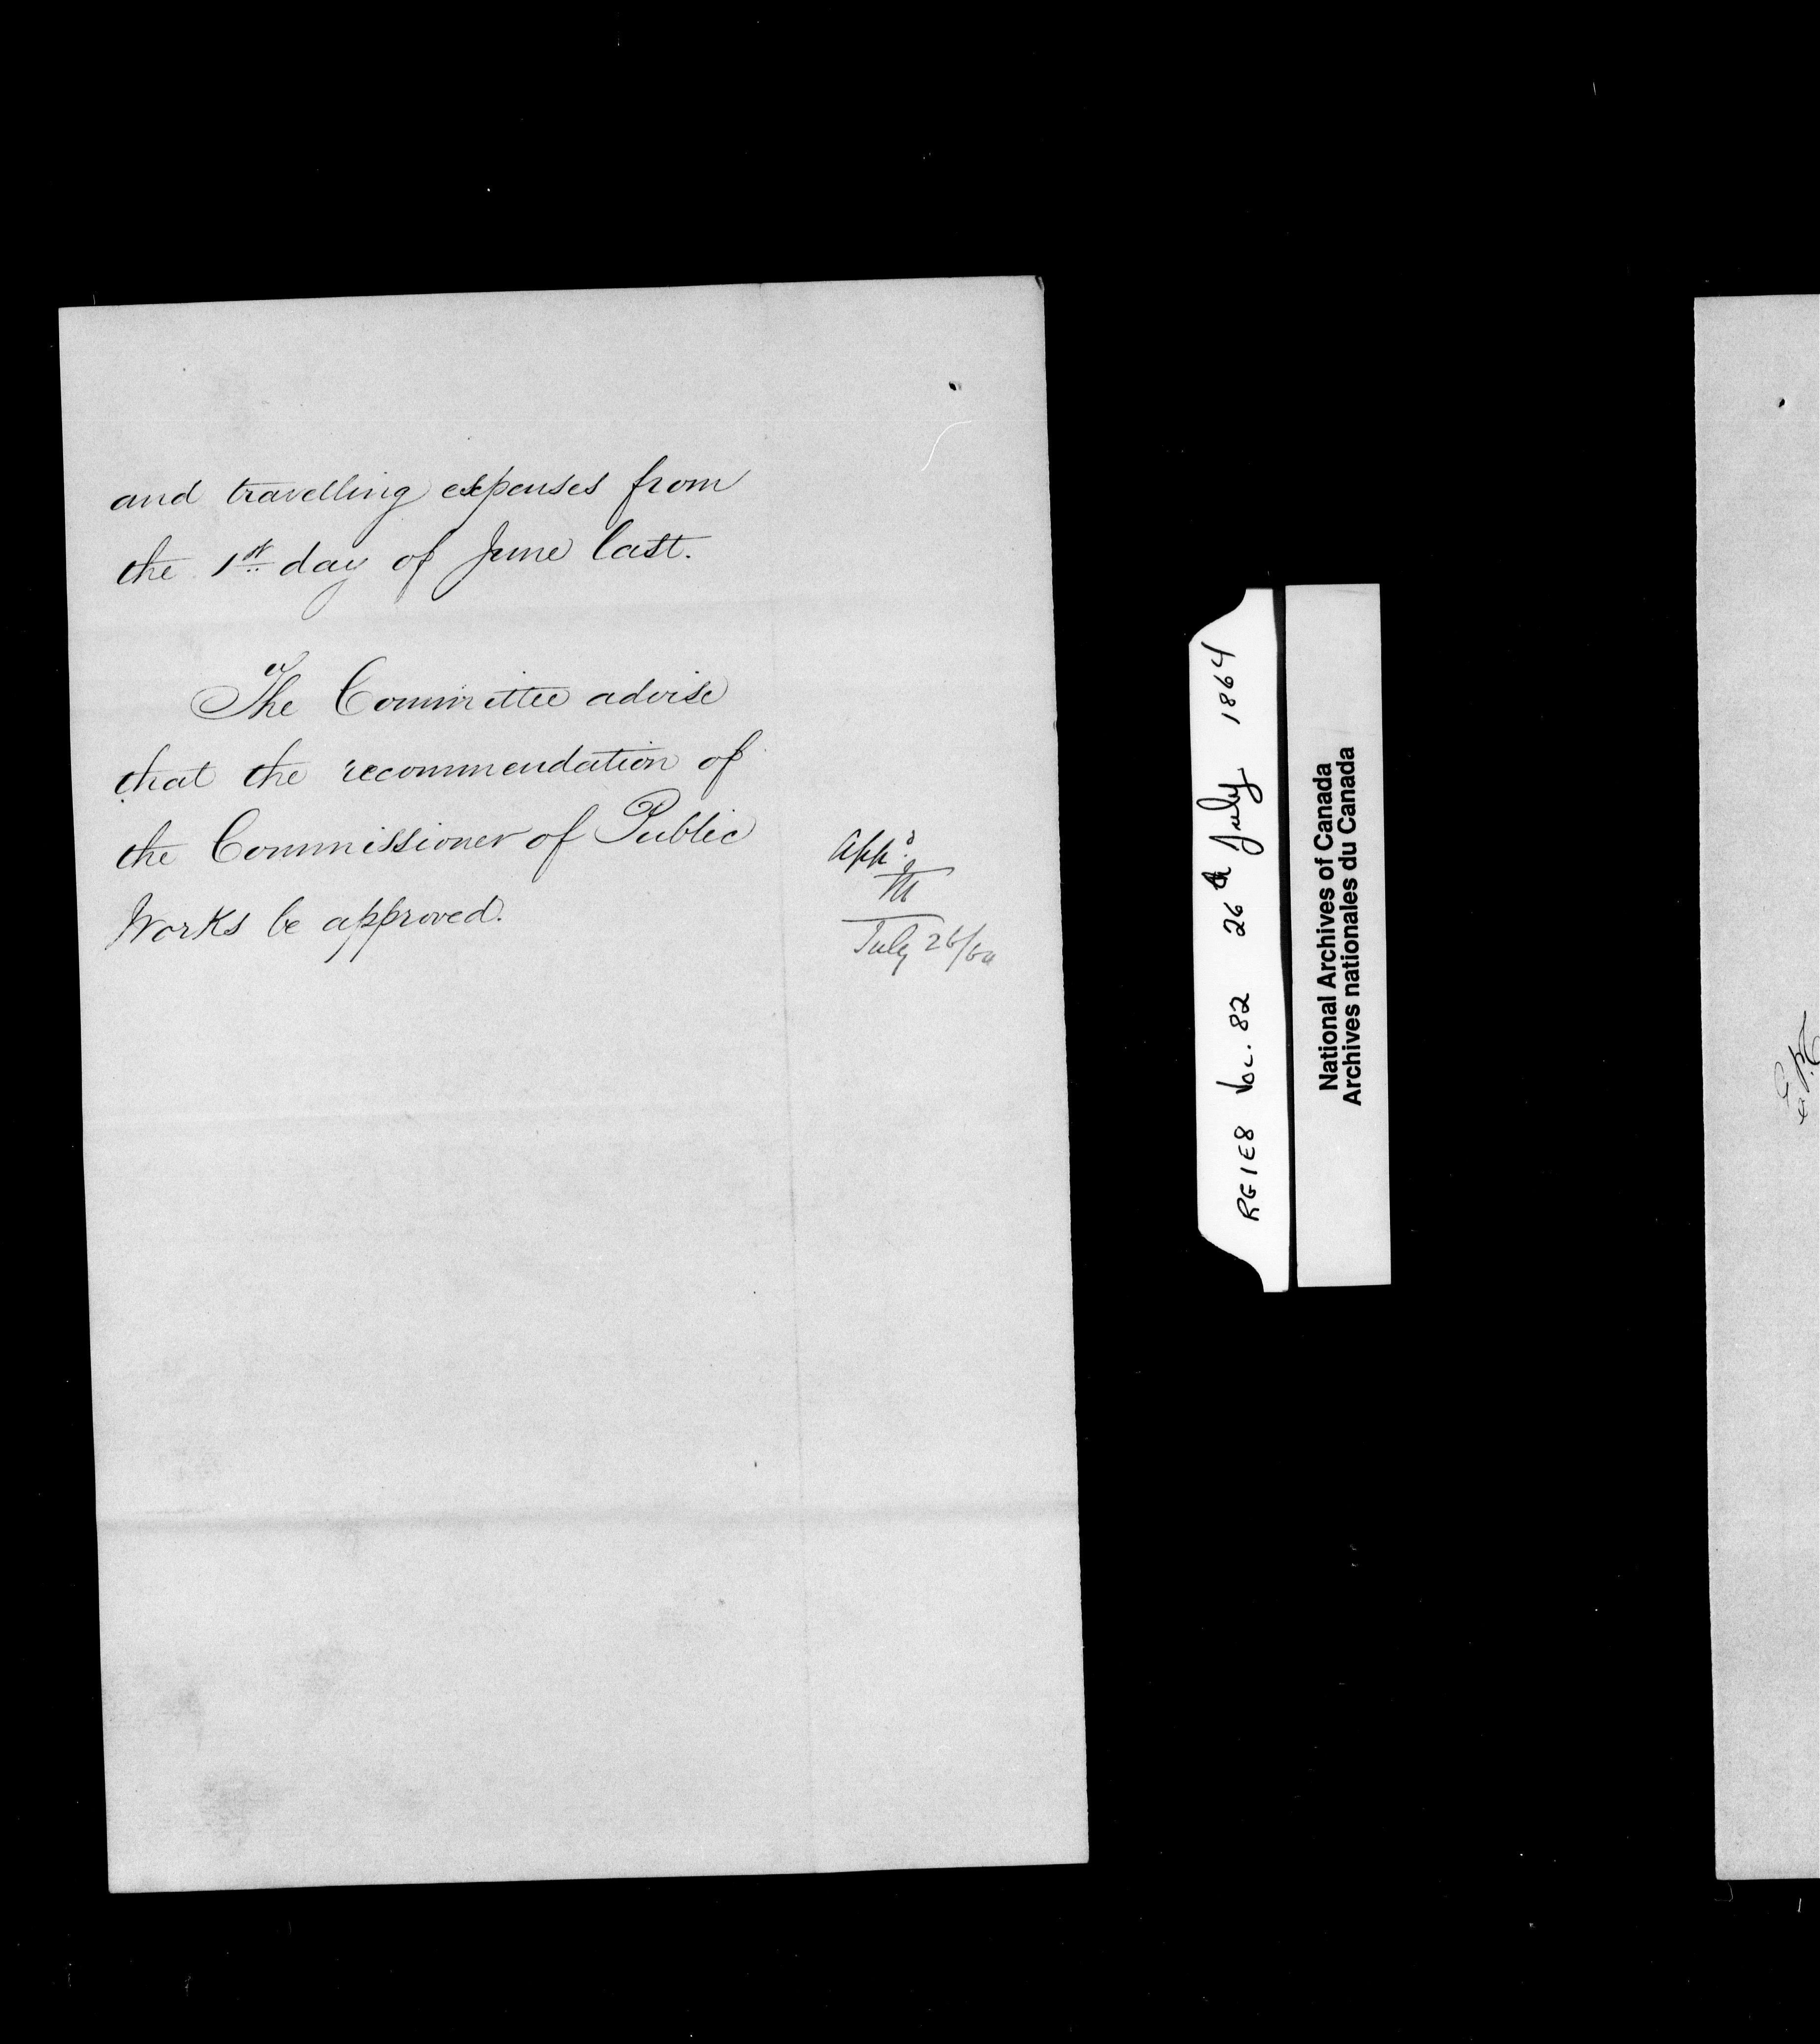 and travelling expenses from
the 1st day of June last.
The Committee advise
that the recommendation of
the Commissioner of Public
Works be approved.
Appd.
M
July 26/64
RG1E8 VOL. 82 26th July 1864
National Archives of Canada
Archives nationales du Canada